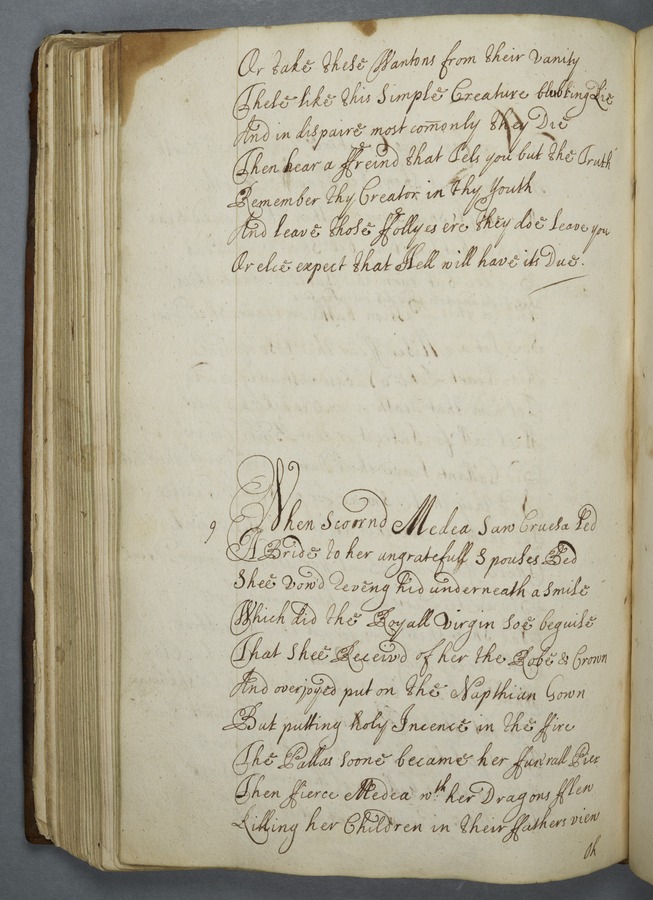 Or take these Wantons from their vanity
These like this Simple Creature blubbing Lie
And in dispaire most com̄only they Die
Then hear a ffreind that Tels you but the Truth
Remember thy Creator in thy Youth
And leave those ffollyes e're they doe leave you
Or elce expect that Hell will have its Due.
9 When Scoornd Medea saw Cruesa Led
A Bride to her ungratefull Spouses Bed
Shee vow'd reveng hid underneath a smile
Which did the Royall Virgin soe beguile
That shee Receiv'd of her the Robe & Crown
And overjoyed put on the Napthian Gown
But putting holy Incence in the fire
The Pallas soone became her ffun'rall Pire
Then ffierce Medea wth her Dragons fflew
Killing her Children in their ffathers view
Oh